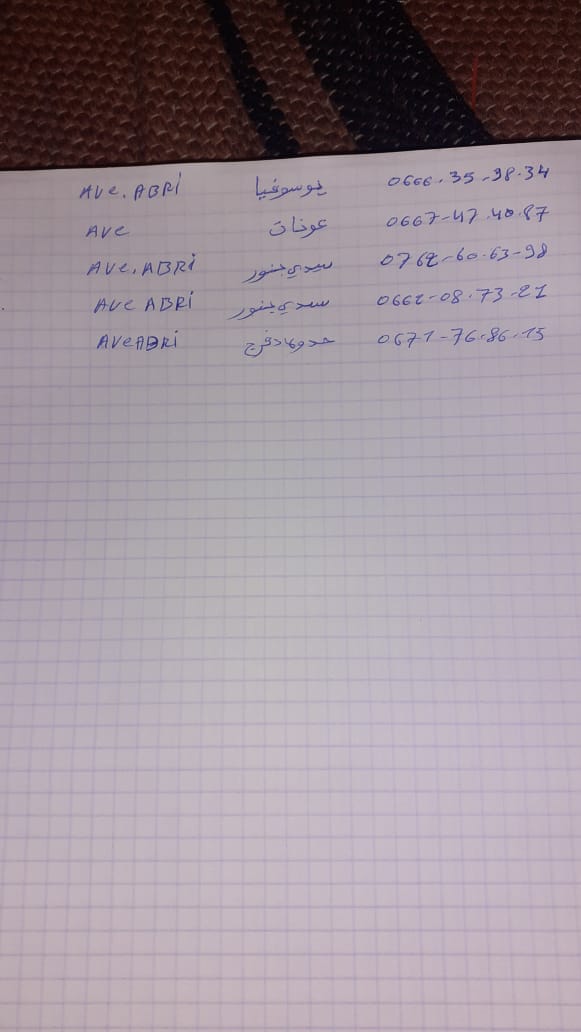 AVe. ABRi يوسوفيا 0666.35-98.34
AVe عونات 0667-47.40.87
AVe. ABRi سيدي بنور 0762-60.63-98
AVe ABRi سيدي بنور 0662-08.73-21
AVeABRi 0671-76.86.15